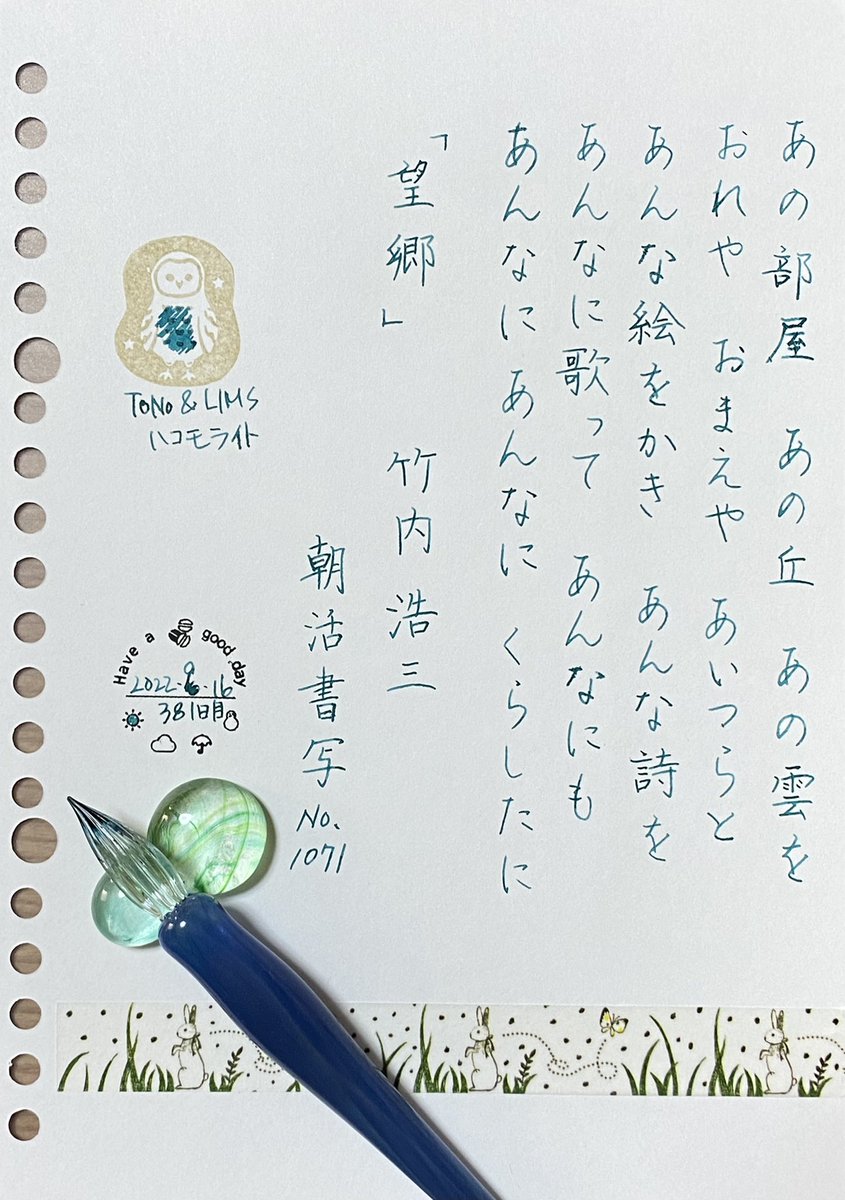 あの部屋 あの丘 あの雲を
おれや おまえや あいつらと
あんな絵をかき あんな詩を
あんなに歌って あんなにも
あんなに あんなに くらしたに
「望郷」 竹内浩三
朝活書写 No. 1071
TONO & LIMS
ハコモライト
Have a good day
2022.9.16
381日目